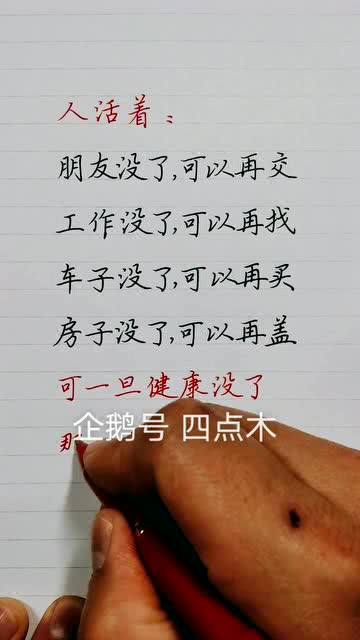 人活着：
朋友没了,可以再交
工作没了,可以再找
车子没了,可以再买
房子没了,可以再盖
可一旦健康没了
企鹅号 四点木